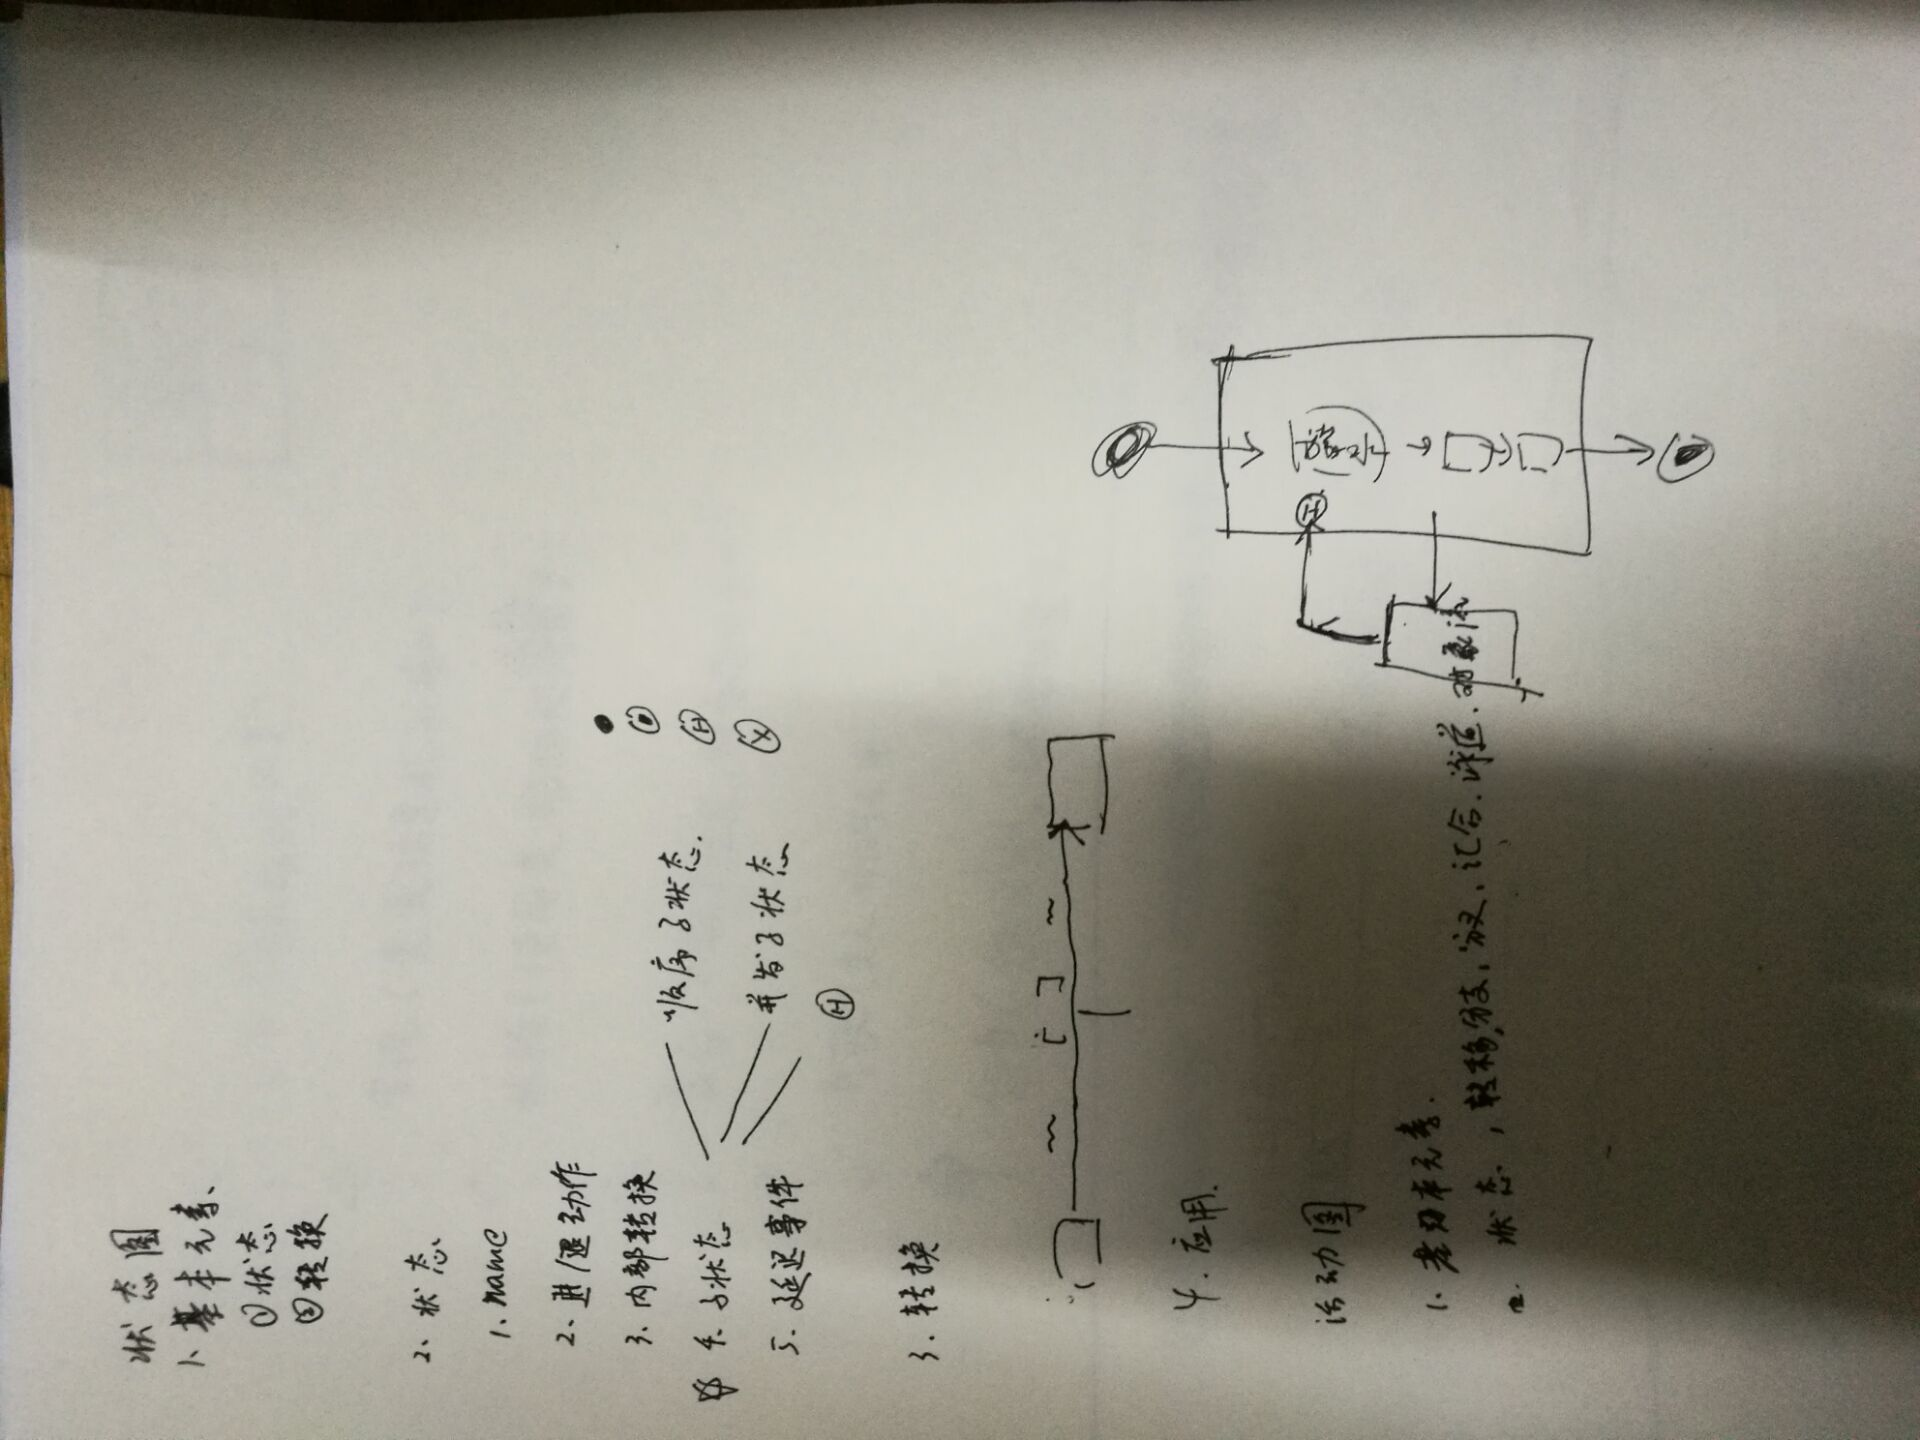 状态图
1、基本元素、
①状态
②转换
2、状态
1、name
2、进/退动作
3、内部转换
4、子状态
顺序子状态.
并发子状态
H
5、延迟事件
H
X
3.转换
[ ]
4.应用.
H
活动图
1.基本元素.
状态,转移,分支,分叉,汇合.泳道.对象流